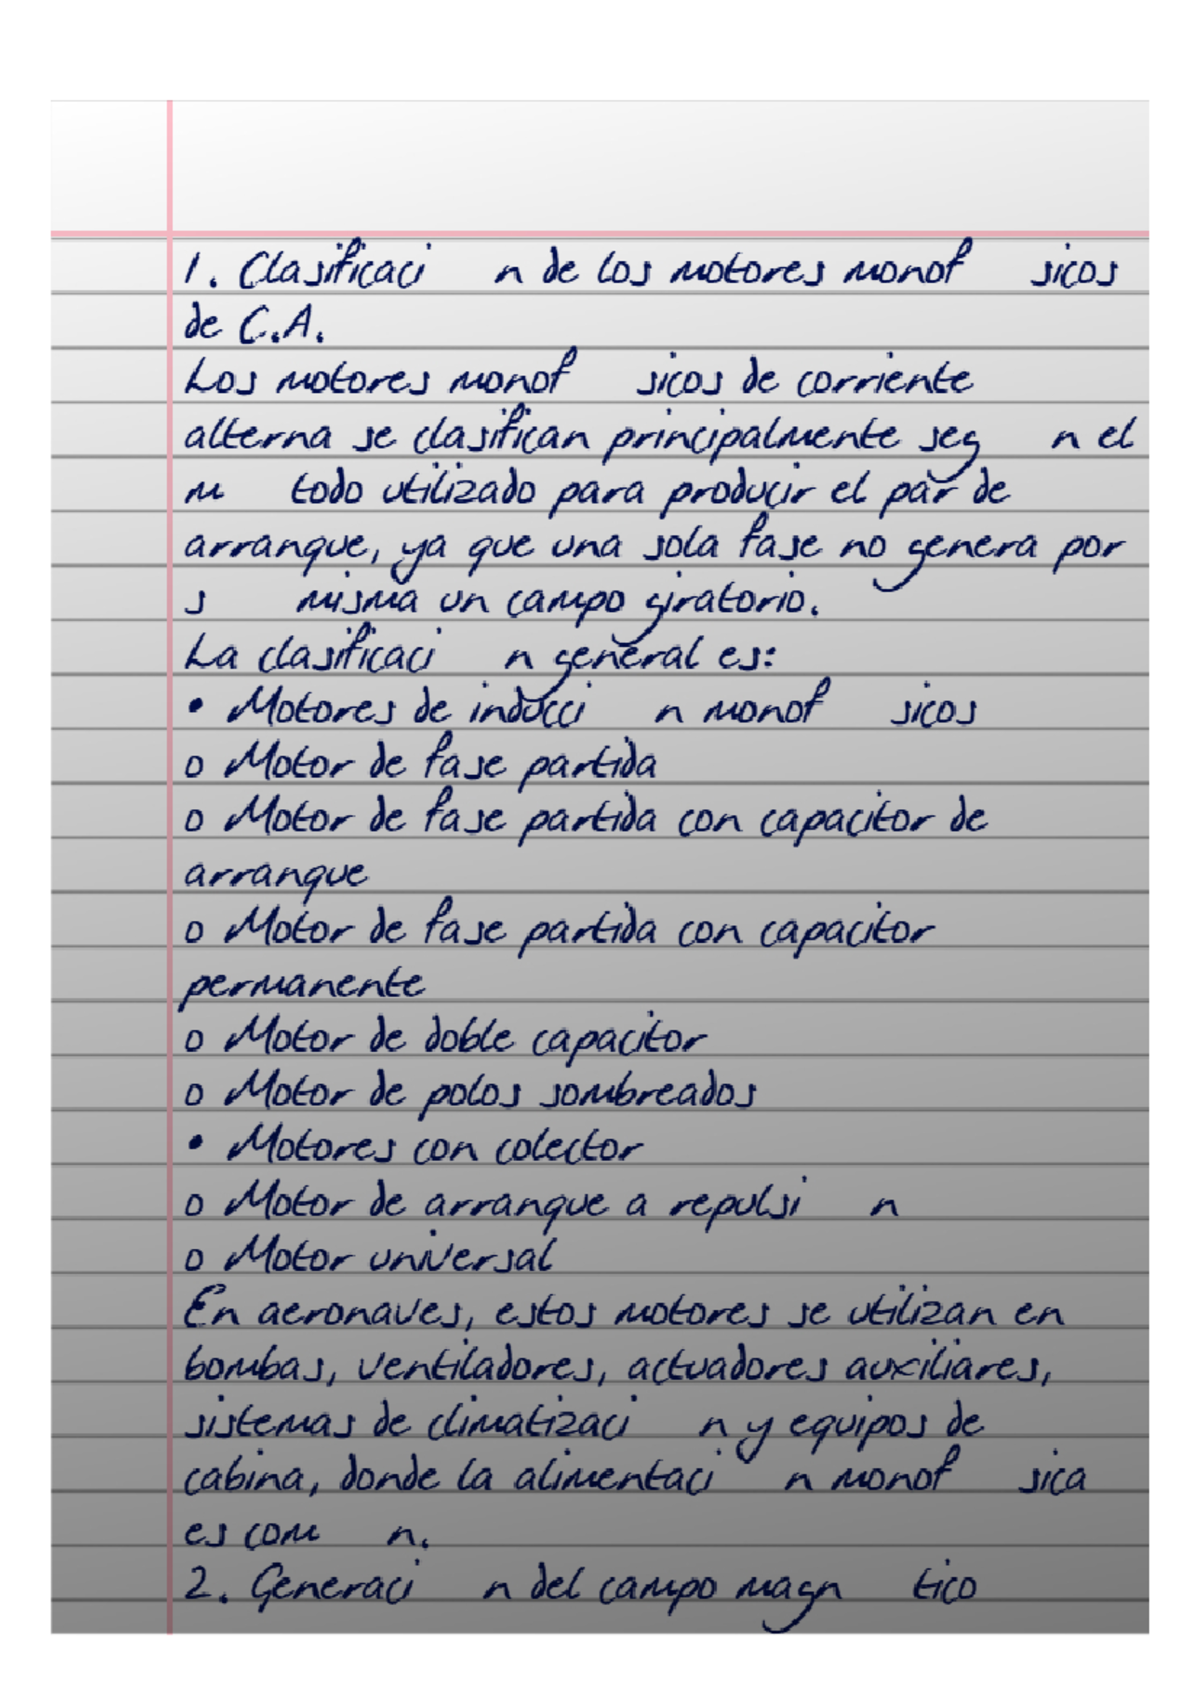 1. Clasificaci n de los motores monof sicos
de C.A.
Los motores monof sicos de corriente
alterna se clasifican principalmente seg n el
m todo utilizado para producir el par de
arranque, ya que una sola fase no genera por
s misma un campo giratorio.
La clasificaci n general es:
• Motores de inducci n monof sicos
o Motor de fase partida
o Motor de fase partida con capacitor de
arranque
o Motor de fase partida con capacitor
permanente
o Motor de doble capacitor
o Motor de polos sombreados
• Motores con colector
o Motor de arranque a repulsi n
o Motor universal
En aeronaves, estos motores se utilizan en
bombas, ventiladores, actuadores auxiliares,
sistemas de climatizaci n y equipos de
cabina, donde la alimentaci n monof sica
es com n.
2. Generaci n del campo magn tico